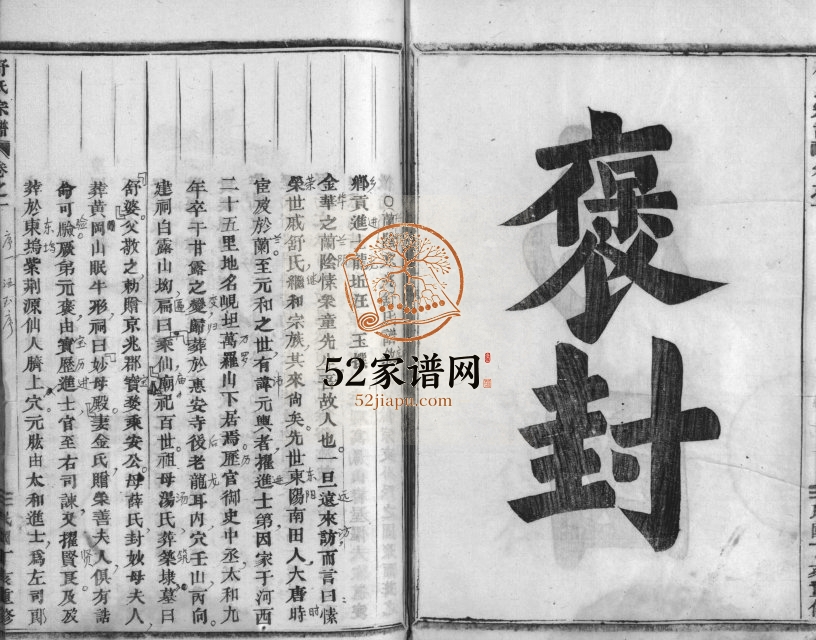 褒封
鄉貢進士
金華之蘭陰愫衆童先
故人也一旦遠來訪而言曰愫
榮世戚舒氏繼和宗族其來尚矣先世東陽南田人大唐時
宦及於蘭至元和之世有諱元輿者擢進士第因家于河西
二十五里地名峴坦萬羅山下居焉歷官御史中丞太和九
年卒于甘露之變歸葬於惠安寺後老龍耳內穴壬山丙向
建祠白露山坳扁曰乘仙廟祀百世祖母湯氏葬築埭墓曰
舒婆父敬之勅贈京兆郡寶婺乘安公母薛氏封妙母夫人
葬黃岡山眠牛形祠曰妙母殿妻金氏贈樂善夫人俱有誥
命可臉厥弟元褒由寶歷進士官至右司諫又擢賢良及歿
葬於東塢紫荊源仙人臍上穴元肱由太和進士爲左司郎
舒氏宗譜
卷之一
52家谱网
52jiapu.com